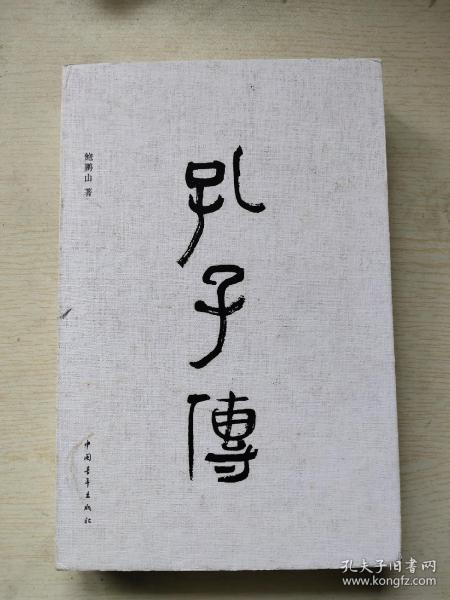 孔子傳
鲍鹏山 著
中国青年出版社
孔夫子旧书网
www.kongfz.com